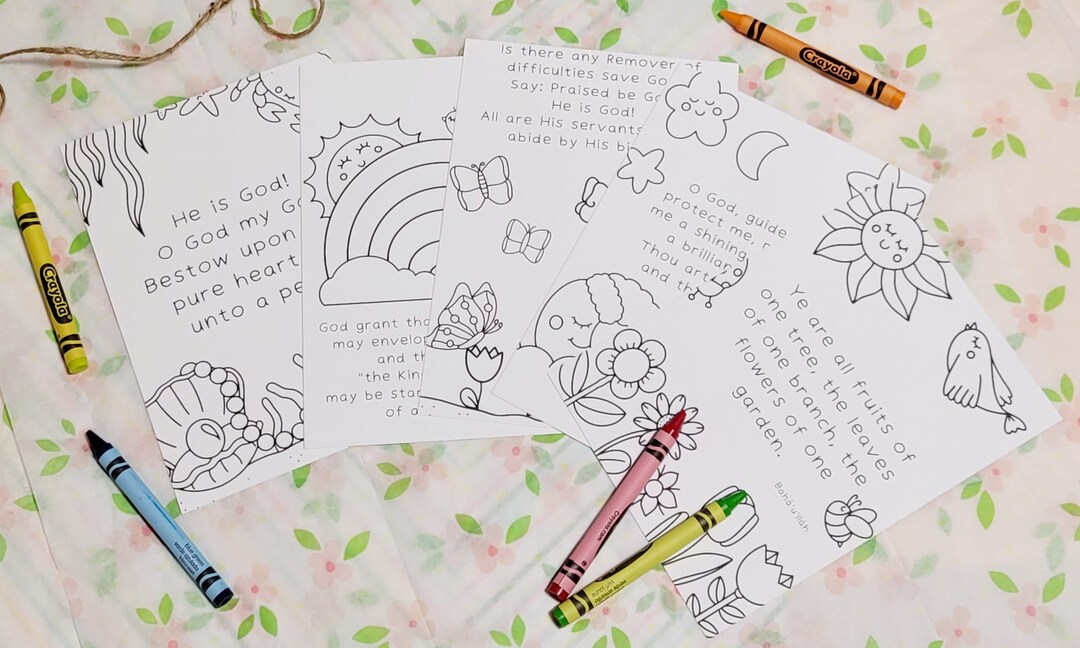 He is God!
O God my
Bestow upon
pure heart
unto a
God grant
may envelop
and
"the
may be
of
Is there any Remover of
difficulties save
Say: Praised be
He is God!
All are His servants
abide by His
O God, guide
protect me,
me a shining
a brilliant
Thou art
and
Ye are all fruits of
one tree, the leaves
of one branch, the
flowers of one
garden.
Bahá'u'lláh
Crayola
Crayola
blue green
Crayola.com